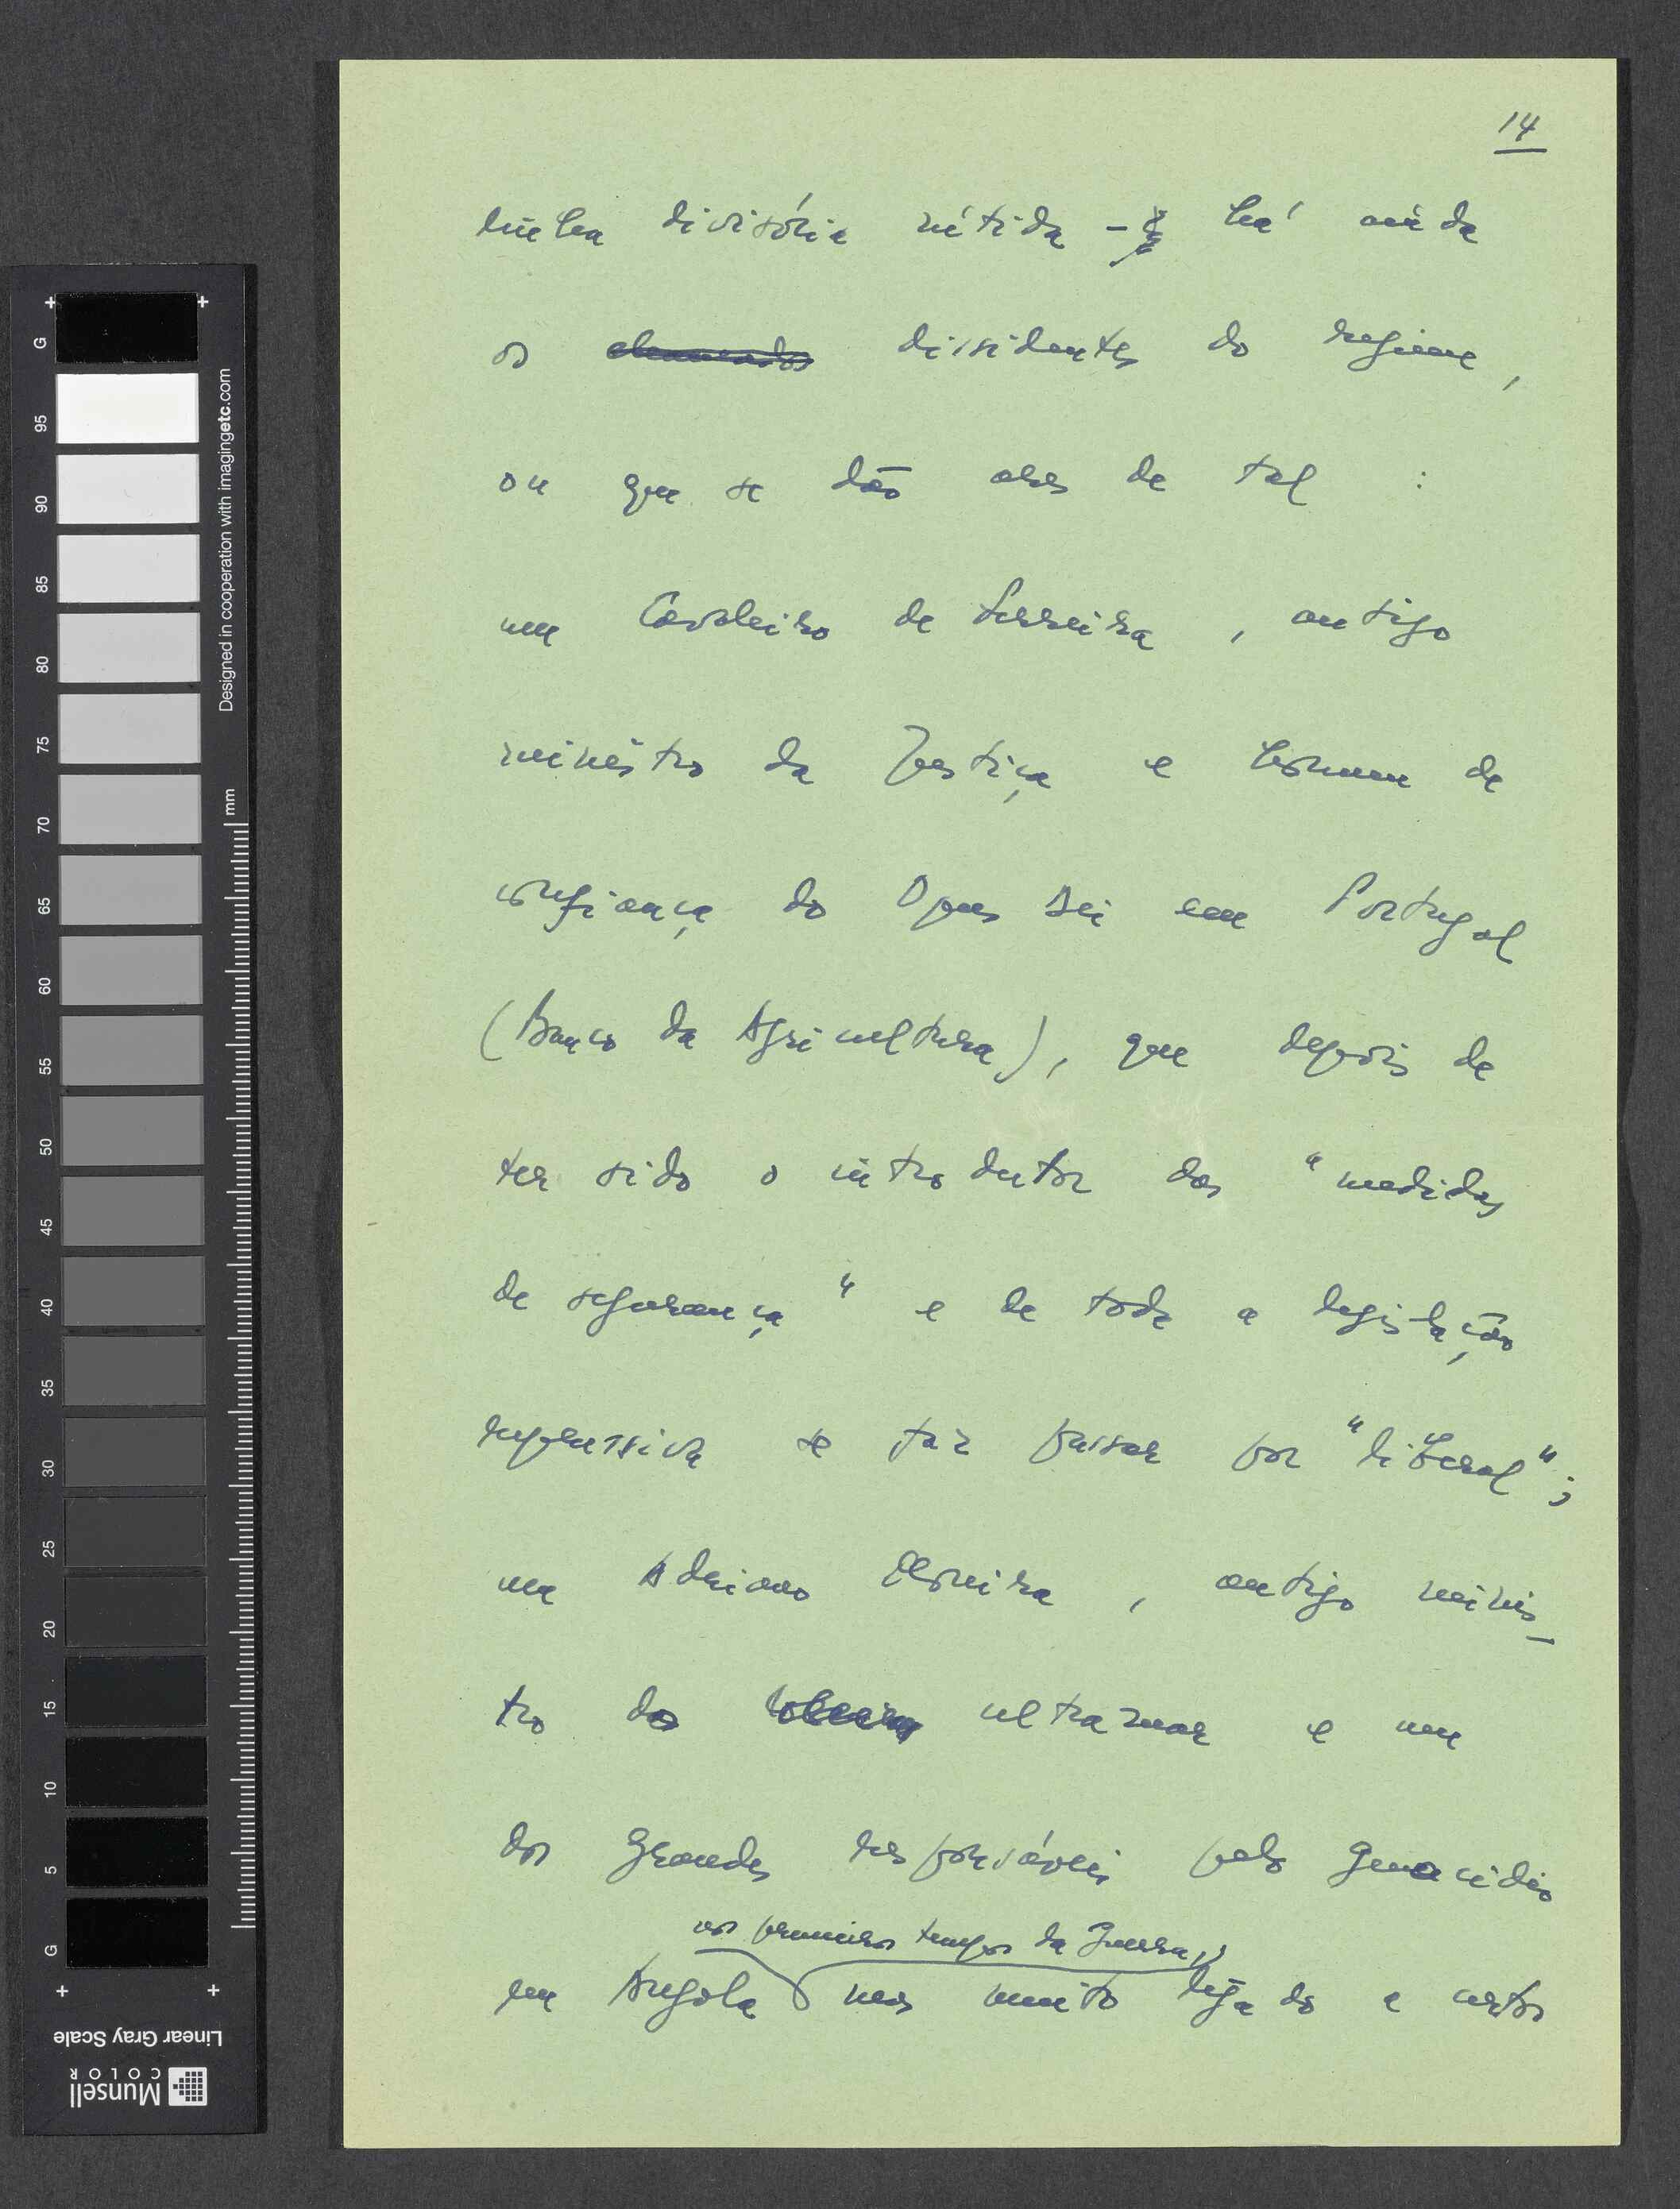 14
linha divisória nítida - há ainda
os chamados dissidentes do regime,
ou que se dão ares de tal :
um Cavaleiro de Ferreira, antigo
ministro da Justiça e homem de
confiança do Opus Dei em Portugal
(Banco da Agricultura), que depois de
ter sido o introdutor das "medidas
de segurança" e de toda a legislação
repressiva se faz passar por "liberal";
um Adriano Moreira, antigo minis-
tro do ultramar e um
dos grandes responsáveis pelo genocídio
nos primeiros tempos da guerra,
em Angola mas muito ligado a certos
G
95
90
85
80
75
70
65
60
55
50
45
40
35
30
25
20
15
10
5
G
Designed in cooperation with imagingetc.com
mm
Linear Gray Scale
Munsell
COLOR